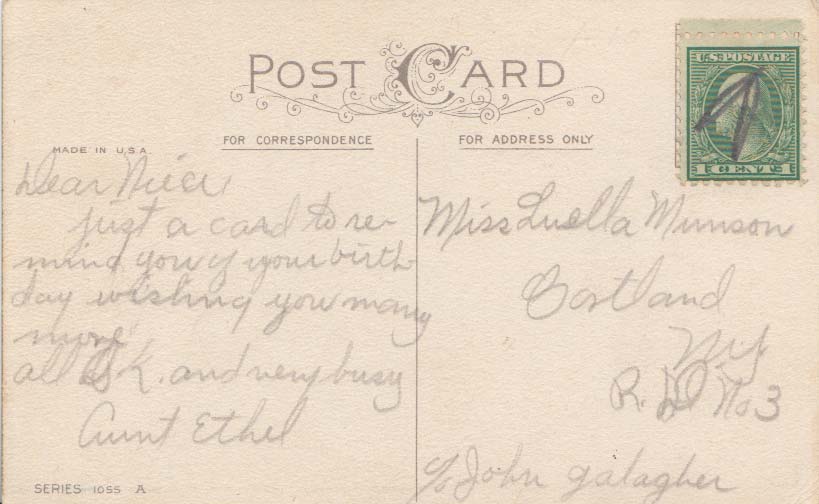 POST CARD
MADE IN U.S.A.
FOR CORRESPONDENCE
FOR ADDRESS ONLY
U.S. POSTAGE
1 CENT 1
Dear Niece
just a card to re-
mind you of your birth
day wishing you many
more
all O K. and very busy
Aunt Ethel
SERIES 1055 A
Miss Luella Munson
Cortland
N.Y.
R. D. No 3
c/o John galagher